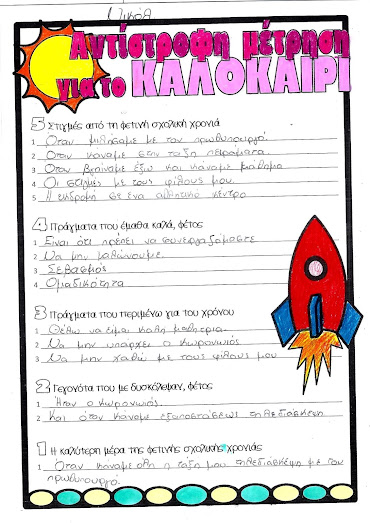 Νικόλ
Αντίστροφη μέτρηση
για το ΚΑΛΟΚΑΙΡΙ
5 Στιγμές από τη φετινή σχολική χρονιά
1 Όταν μιλήσαμε με τον πρωθυπουργό.
2 Όταν κάναμε στην τάξη πειράματα.
3 Όταν βγαίναμε έξω και κάναμε μάθημα
4 Οι στιγμές με τους φίλους μου.
5 Η εκδρομή σε ένα αθλητικό κέντρο
4 Πράγματα που έμαθα καλά, φέτος
1 Είναι ότι πρέπει να συνεργαζόμαστε
2 Να μην μαλώνουμε
3 Σεβασμός
4 Ομαδικότητα
3 Πράγματα που περιμένω για του χρόνου
1 Θέλω να είμαι καλή μαθήτρια
2 Να μην υπάρχει ο κορωνοιός
3 Να μην χαθώ με τους φίλους μου
2 Γεγονότα που με δυσκόλεψαν, φέτος
1 Ήταν ο κορωνοιός.
2 Και όταν κάναμε εξαποστάσεως τηλεδιάσκεψη
1 Η καλύτερη μέρα της φετινής σχολικής χρονιάς
1 Όταν κάναμε όλη η τάξη μου τηλεδιάσκεψη με τον
πρωθυπουργό.